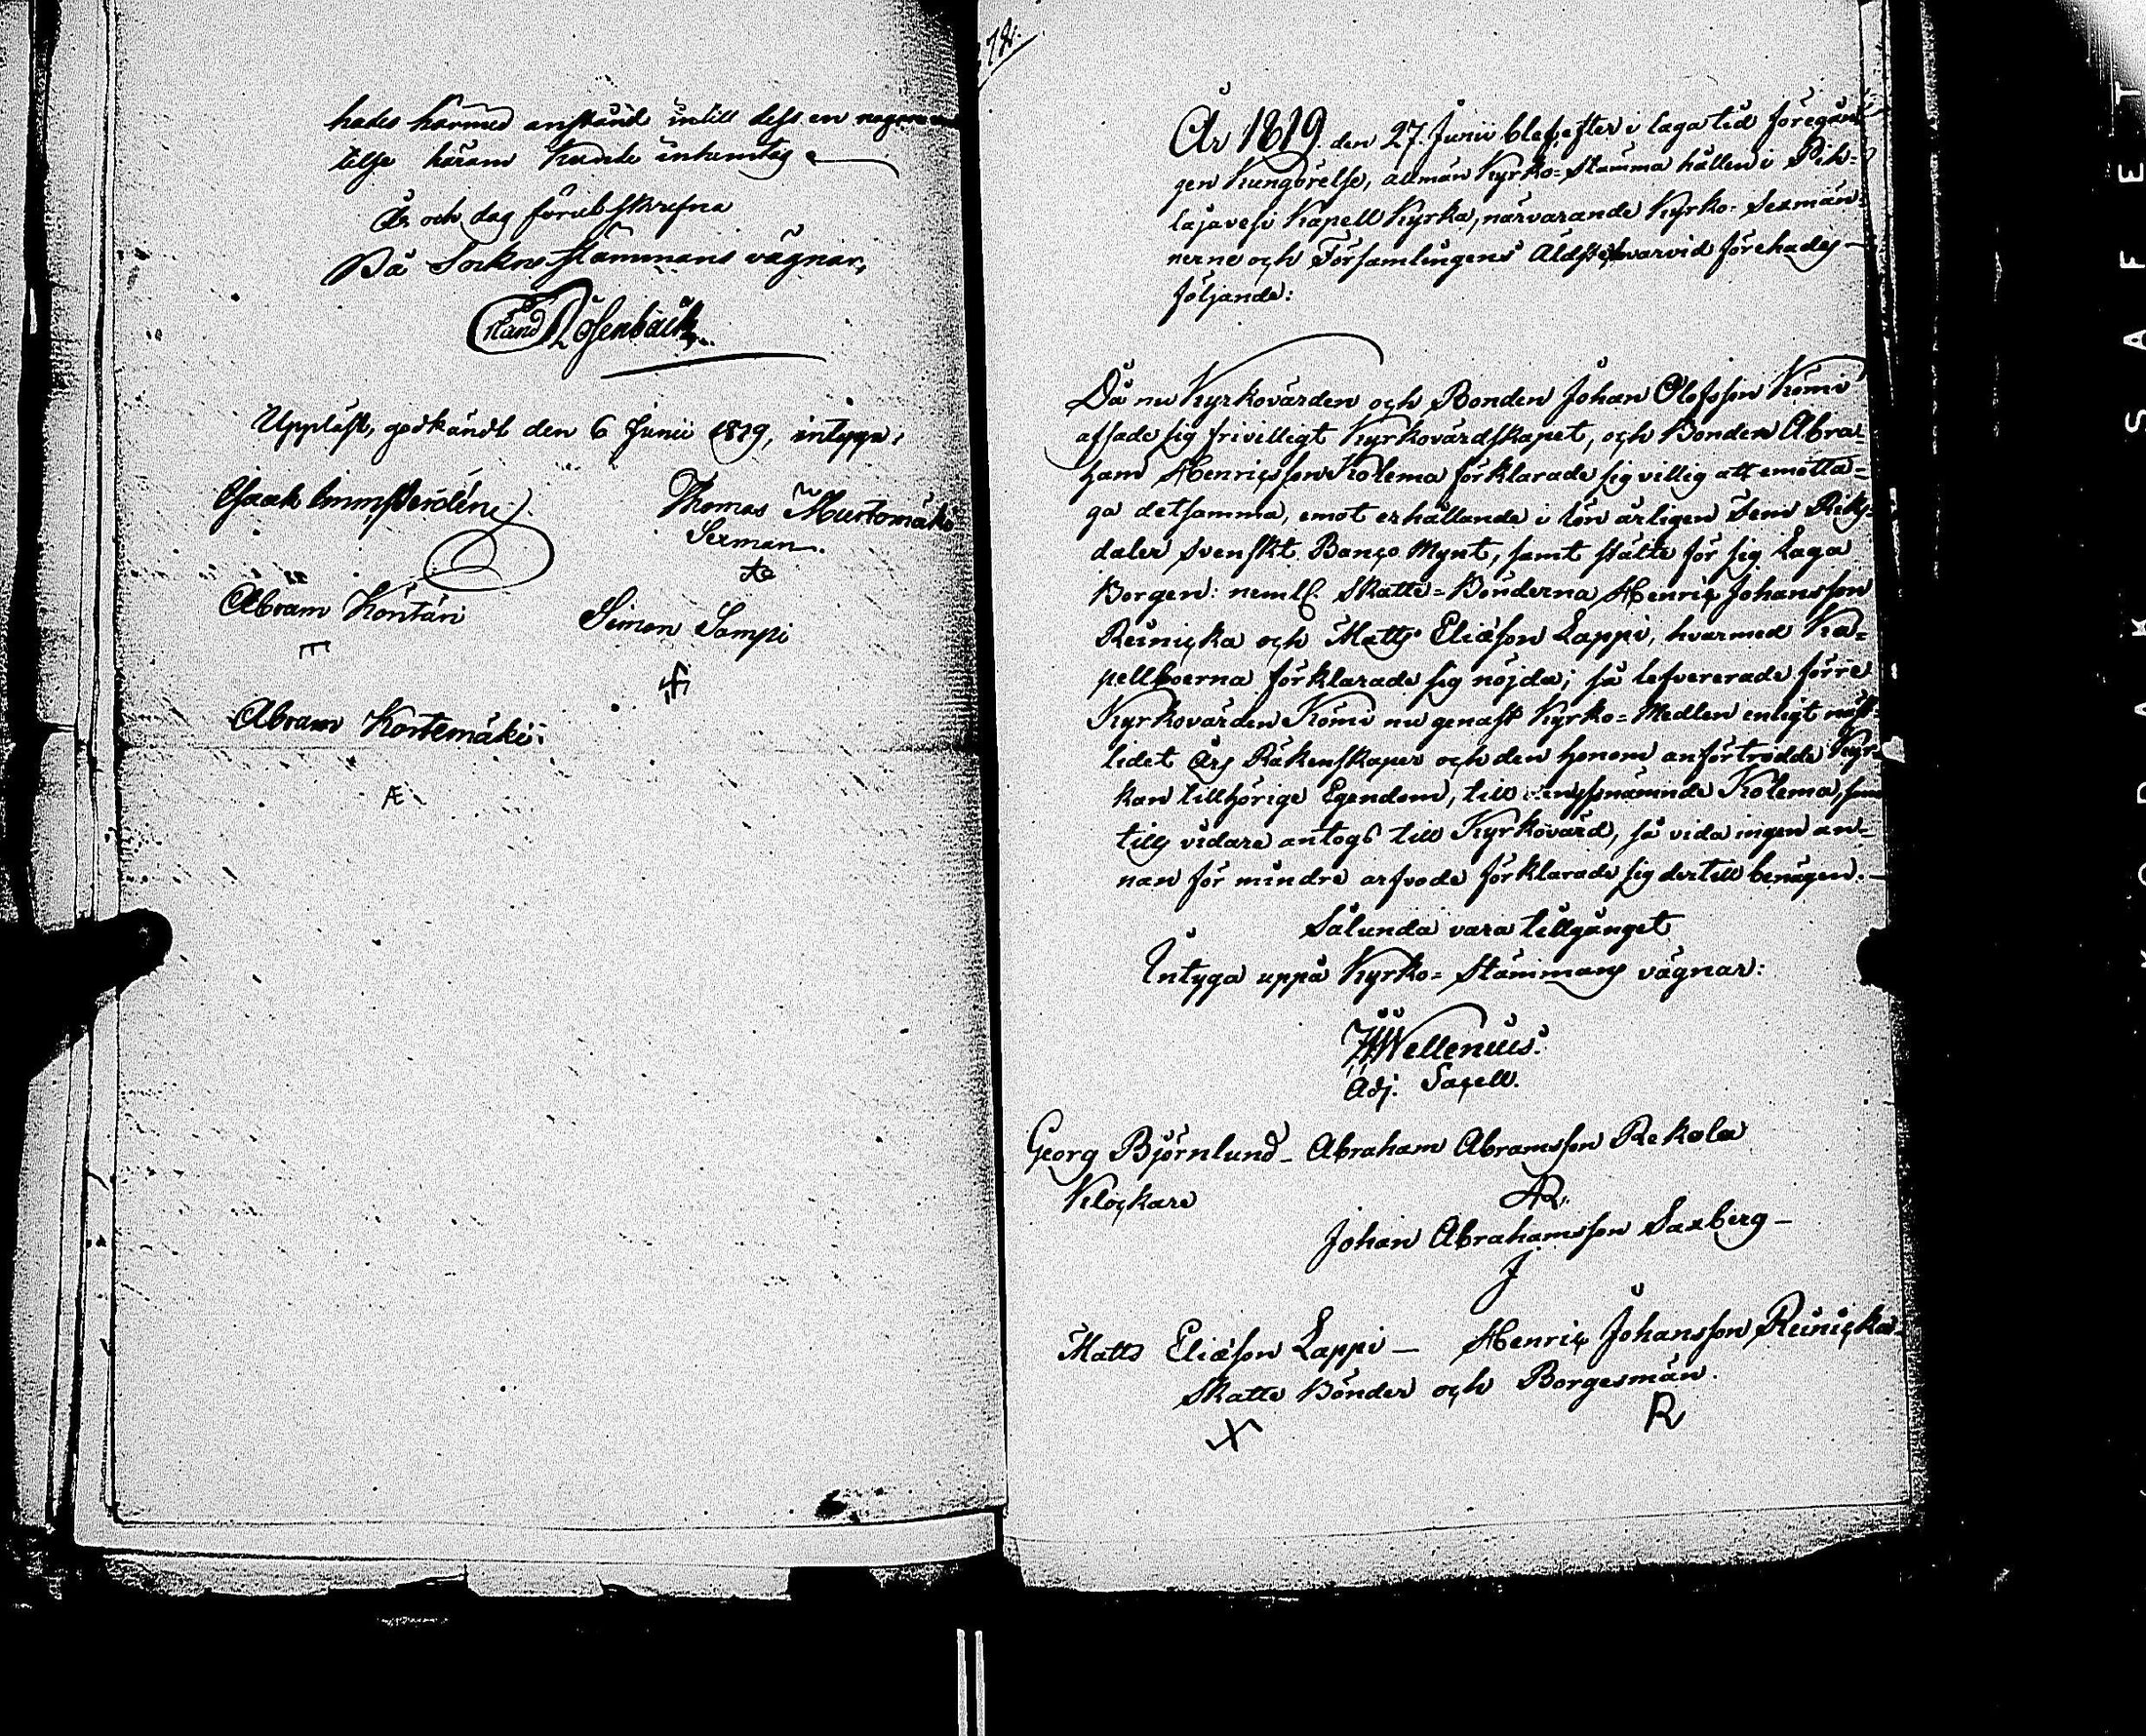 hades härmed anstånd intill dess en
telse härom hunde inhemtas
År och dag förutskrefna
På Sockne stämmans vägnar,
Erland Rosenback
Uppläst, godkändt den 6 Junii 1819, intyga:
Isaak
Thomas Murtomäki
Sexman.
Abram Kontäri
Simon Sampi
Abram Kortemäki.
Æ
78.
År 1819. den 27. Junii blef, efter i laga tid föregån
gen Kungörelse, allmän Kyrko-Stämma hållen i Pih-
lajavesi Kapell Kyrka, närvarande Kyrko-Sexmän-
nerne och Församlingens Äldste, hvarvid förehades
följande:
Då nu Kyrkovärden och Bonden Johan Olofsson Kömi
afsade sig frivilligt Kyrkovärdskapet, och Bonden Abra-
ham Henricsson Kolema förklarade sig villig att emotta-
ga detsamma, emot erhållande i lön årligen Fem Riks-
daler Svenskt Banco Mynt, samt stälte för sig Laga
Borgen: neml. Skatte-Bönderna Henric Johansson
Reinicka och Matts Eliæson Lappi, hvarmed Ka-
pellboerna förklarade sig nöjda; så lefvererade förre
Kyrkovärden Kömi nu genast Kyrko-Medlen enligt näst-
lidet Års Räkenskaper och den honom anförtrodde Kyr-
kan tillhörige Egendom, till Kolema, som
tills vidare antogs till Kyrkovärd, så vida ingen an-
nan för mindre arfvode förklarade sig dertill benägen.
Sålunda vara tillgånget
Intyga uppå Kyrko-Stämmans vägnar:
Wellenius.
Adj. Sacell.
Georg Björnlund - Abraham Abramsson Rekola
Klockare
AR.
Johan Abrahamsson Saxberg -
J
Matts Eliæson Lappi - Henric Johansson Reinicka.
Skatte Bönder och Borgesmän.
X R
K O D A K S A F E T